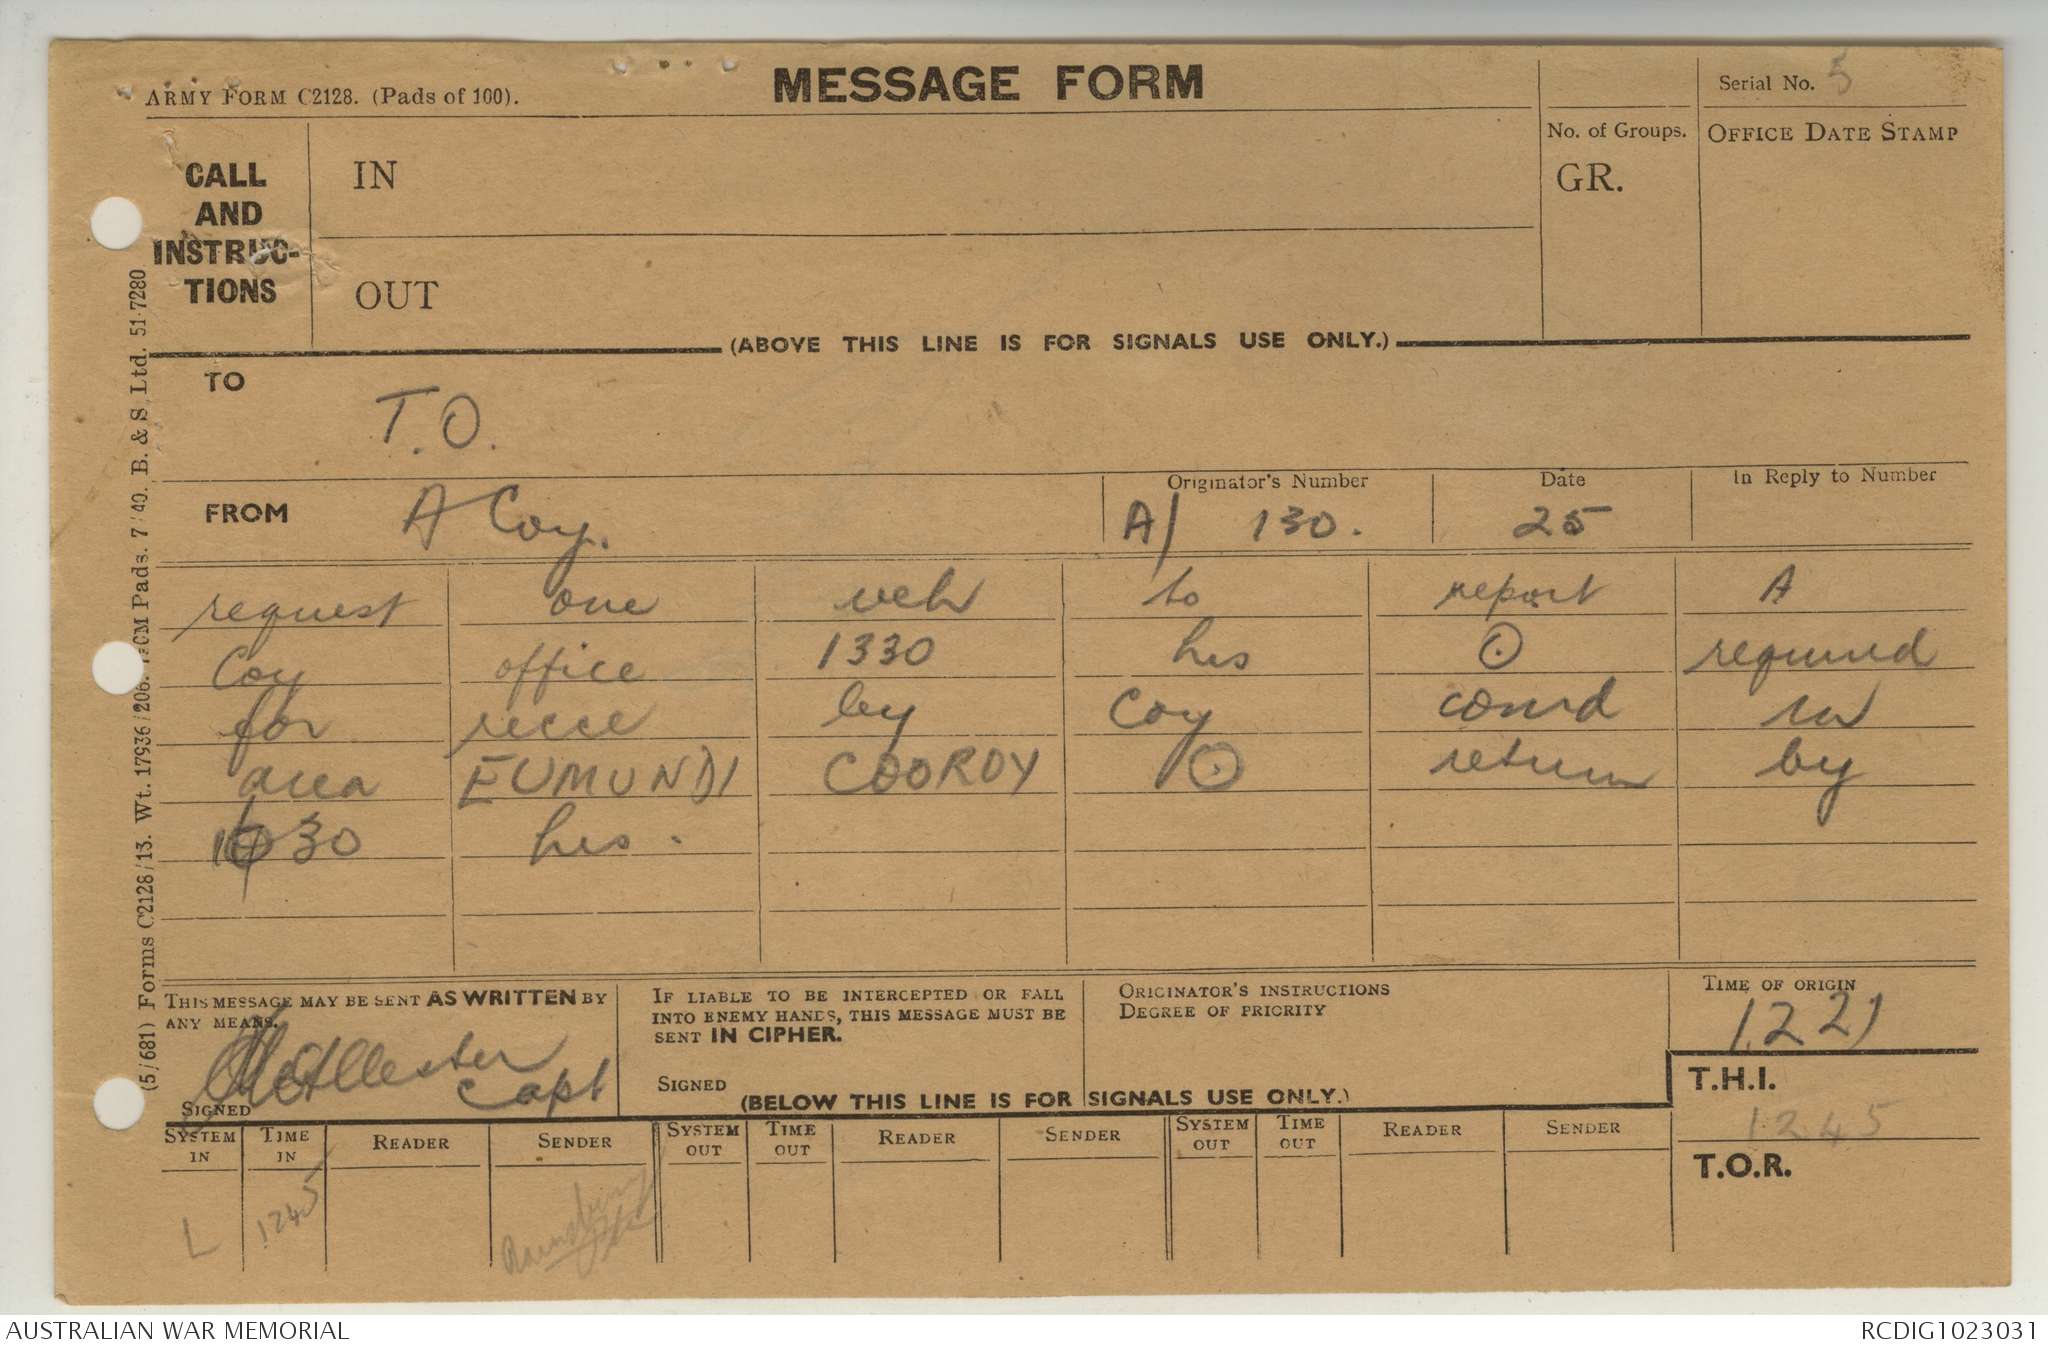 ARMY FORM C2128. (Pads of 100).
MESSAGE FORM
Serial No. 5
CALL AND INSTRUC-TIONS
IN
OUT
No. of Groups.
GR.
OFFICE DATE STAMP
(ABOVE THIS LINE IS FOR SIGNALS USE ONLY.)
TO
T.O.
FROM A Coy.
Originator's Number
A/ 130.
Date
25
In Reply to Number
request one veh to report A
Coy office 1330 hrs ⊙ required
for recce by Coy comd in
area EUMUNDI COOROY ⊙ return by
1630 hrs.
THIS MESSAGE MAY BE SENT AS WRITTEN BY
ANY MEANS.
Capt
SIGNED
IF LIABLE TO BE INTERCEPTED OR FALL
INTO ENEMY HANDS, THIS MESSAGE MUST BE
SENT IN CIPHER.
SIGNED
ORIGINATOR'S INSTRUCTIONS
DEGREE OF PRIORITY
TIME OF ORIGIN
1221
(BELOW THIS LINE IS FOR SIGNALS USE ONLY.)
T.H.I.
1245
T.O.R.
SYSTEM IN TIME IN READER SENDER SYSTEM OUT TIME OUT READER SENDER SYSTEM OUT TIME OUT READER SENDER
L 1245
B. & S. Ltd. 51-7280
AUSTRALIAN WAR MEMORIAL
RCDIG1023031